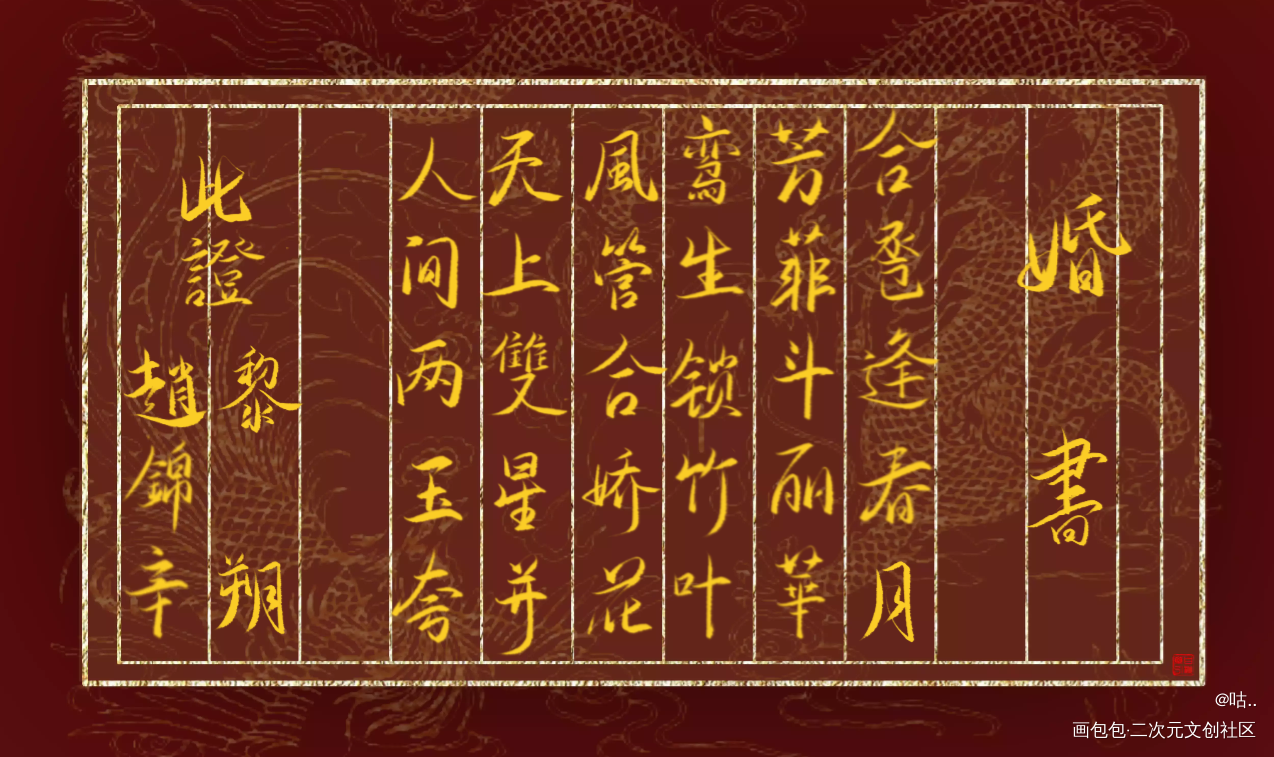 婚書
合卺逢春月
芳菲斗丽華
鸾生锁竹叶
風管合娇花
天上雙星并
人间两玉夸
此證
黎朔
趙錦辛
@咕..
画包包·二次元文创社区